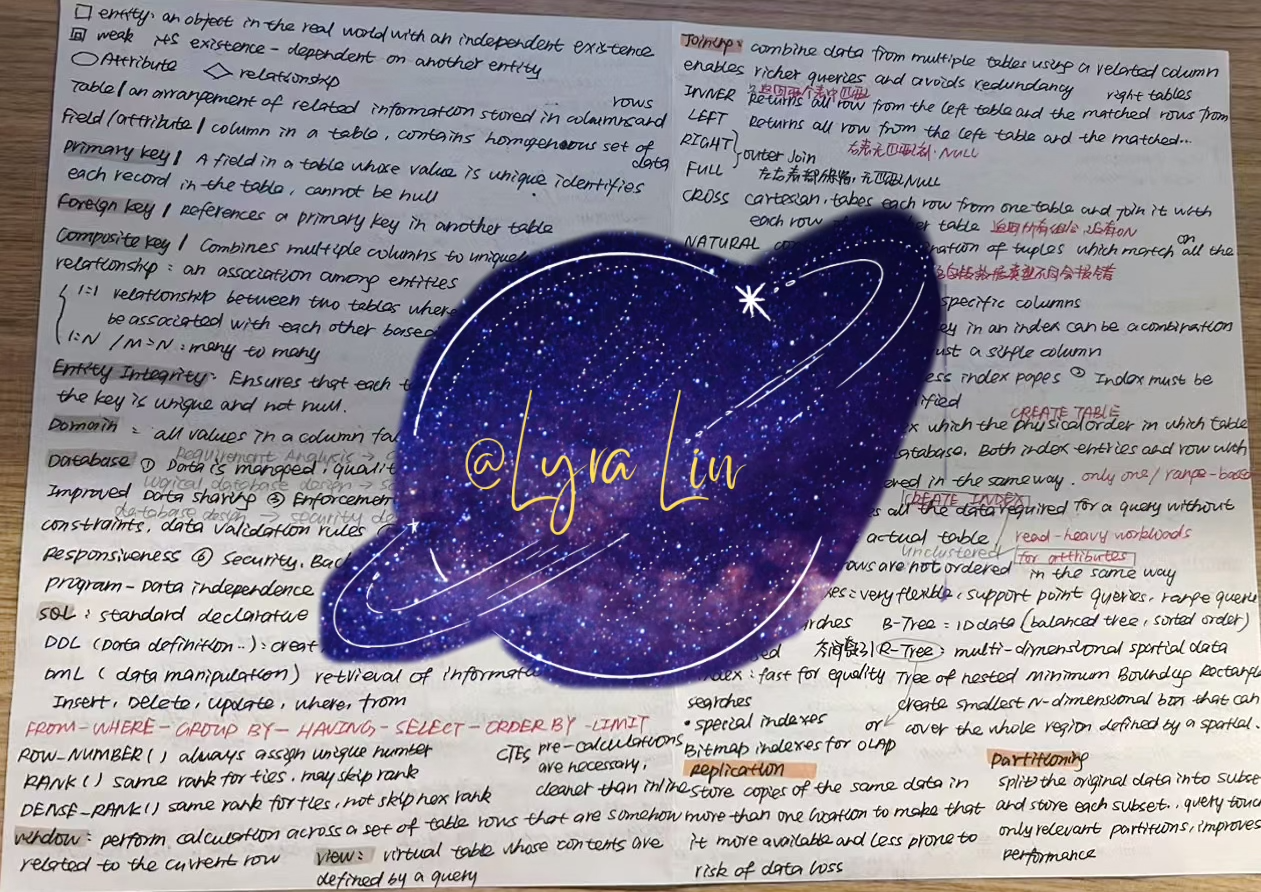 □ entity: an object in the real world with an independent existence
weak its existence-dependent on another entity
Attribute relationship
Table / an arrangement of related information stored in columns and rows
Field/attribute / column in a table, contains homogenous set of data
primary key / A field in a table whose value is unique identifies
each record in the table, cannot be null
Foreign key / References a primary key in another table
Composite key / Combines multiple columns to unique
relationship: an association among entities
1:1 relationship between two tables where
be associated with each other based
1:N / M:N: many to many
Entity Integrity: Ensures that each t
the key is unique and not null.
Domain: all values in a column fa
Requirement Analysis →
Database ① Data is manged, quali
logical database design → s
Improved Data sharing ③ Enforcemen
database design → security de
constraints, data validation rules
Responsiveness ⑥ Security, Bac
program-Data independence
SQL: standard declarative
DDL (Data definition..): creat
DML (data manipulation) retrieval of informat
Insert, Delete, update, where, from
FROM-WHERE-GROUP BY-HAVING-SELECT-ORDER BY-LIMIT
ROW_NUMBER() always assign unique number
RANK() same rank for ties, may skip rank
DENSE_RANK() same rank for ties, not skip nex rank
CTEs pre-calculations
are necessary,
cleaner than inline
window: perform calculation across a set of table rows that are somehow
related to the current row
view: virtual table whose contents are
defined by a query
@Lyra Lin
Joining: combine data from multiple tables using a related column
enables richer queries and avoids redundancy
INNER Returns all row from the left table and the matched rows from right tables
LEFT Returns all row from the left table and the matched...
RIGHT
outer join
NULL
FULL
NULL
CROSS cartesian, takes each row from one table and join it with
each row table 没有ON
NATURAL nation of tuples which match on all the
specific columns
ey in an index can be a combination
ust a single column
ess index pages ③ Index must be
ified
CREATE TABLE
x which the physical order in which table
atabase. Both index entries and row with
ered in the same way. only one/range-based
CREATE INDEX
s all the data required for a query without
actual table read-heavy workloads
unclustered for attributes
rows are not ordered in the same way
xes: very flexible, support point queries, range queries
rches B-Tree: 1D data (balanced tree, sorted order)
R-Tree: multi-dimensional spatial data
ndex: fast for equality Tree of nested minimum Boundup Rectangle
searches create smallest N-dimensional box that can
• special indexes or cover the whole region defined by a spatial.
Bitmap indexes for OLAP
Replication
store copies of the same data in
more than one location to make that
it more available and less prone to
risk of data loss
partitioning
split the original data into subset
and store each subset.. query touch
only relevant partitions, improves
performance